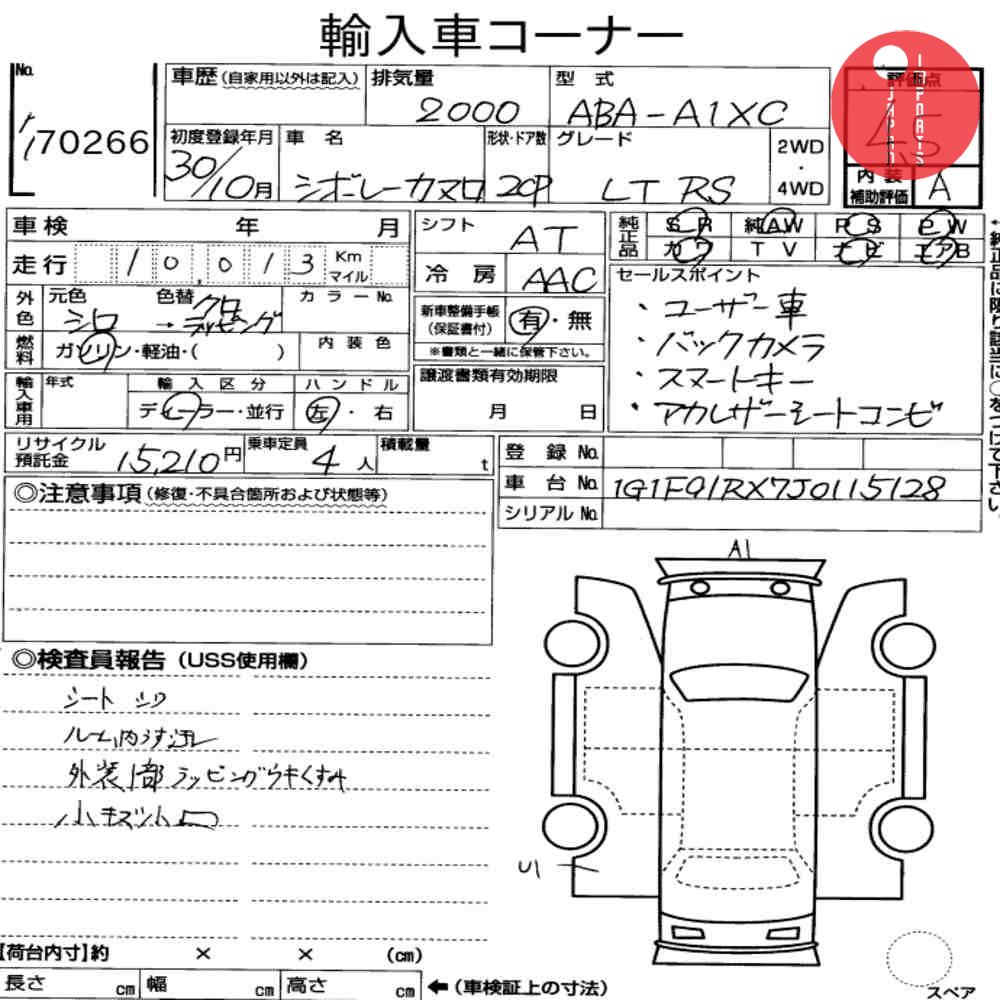 輸入車コーナー
No. 1/70266
車歴(自家用以外は記入)
排気量 2000
型式 ABA-A1XC
評価点 4.5
JAPAN IMPORTS
初度登録年月 30/10月
車名 シボレーカマロ
形状・ドア数 2DP
グレード LT RS
2WD・4WD
内装補助評価 A
車検 年 月
走行 10,013 Km マイル
シフト AT
冷房 AAC
純正品 SR 純AW PS PW
カワ TV ナビ エアB
セールスポイント
・ユーザー車
・バックカメラ
・スマートキー
・アカレザーシートコンビ
外色 元色 シロ 色替 クロ →ラッピング カラーNo.
燃料 ガソリン・軽油・( ) 内装色
新車整備手帳(保証書付) 有・無
※書類と一緒に保管下さい。
譲渡書類有効期限
月 日
輸入車用 年式 輸入区分 ハンドル
ディーラー・並行 左・右
リサイクル預託金 15,210円 乗車定員 4人 積載量 t
登録No.
車台No. 1G1F91RX7J0115128
シリアルNo.
◎注意事項(修復・不具合箇所および状態等)
◎検査員報告(USS使用欄)
シート シワ
ルーム内うす汚レ
外装1部ラッピングウキくすみ
小キズ小凹
A1
U1
【荷台内寸】約 × × (cm)
長さ cm 幅 cm 高さ cm ←(車検証上の寸法)
スペア